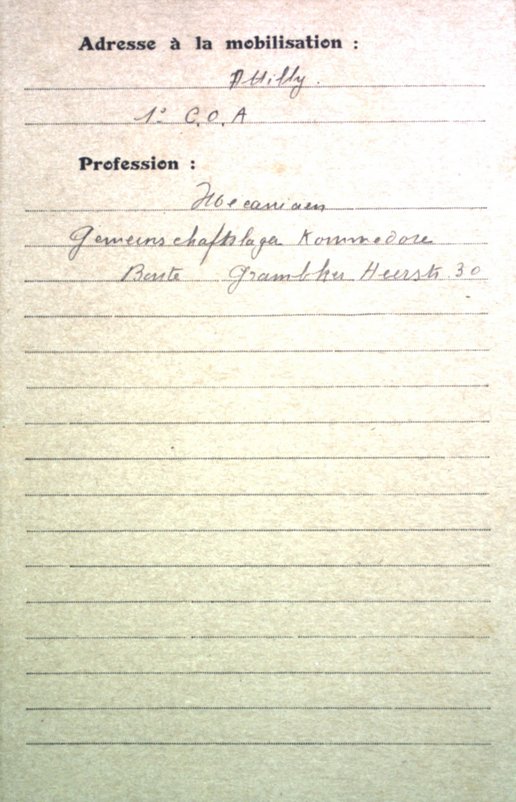 Adresse à la mobilisation :
Attilly.
1º C.O.A
Profession :
Mecanicien
Gemeinschaftslager Kommodore
Bonte Grambker Heerstr 30